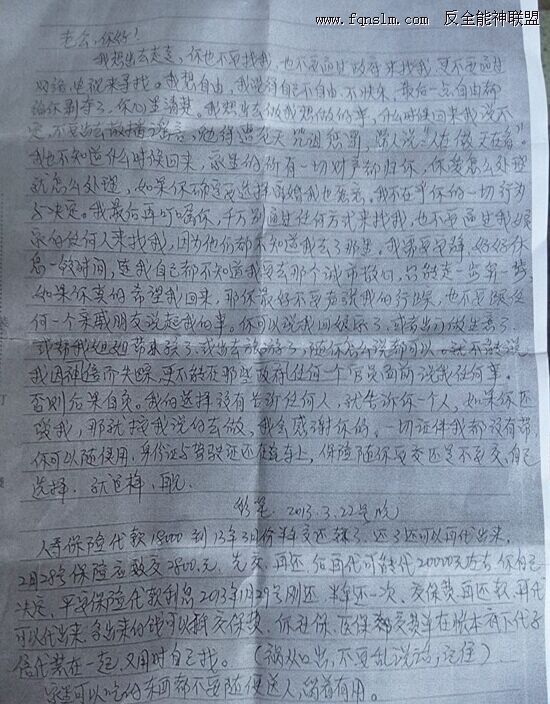 www.fqnslm.com 反全能神联盟
老公，你好！
我想出去走走，你也不要找我，也不要通过政府来找我，更不要通过
网络电视来寻找。我想自由，我觉得自己不自由，不快乐，最后一点自由都
给你剥夺了，你心里清楚。我想出去做我想做的事，什么时候回来我说不
定，不要论断散播谣言，免得遭天咒诅惩罚，常人说“人在做天在看”。
我也不知道什么时候回来，家里的所有一切财产都归你，你爱怎么处理
就怎么处理，如果你确定要选择离婚我也愿意。我不在乎你的一切行为
与决定。我最后再叮嘱你，千万别通过任何方式来找我，也不要通过我娘
家的任何人来找我，因为他们都不知道我去了那里。我需要安静，好好休
息一段时间，连我自己都不知道我要去那个城市散心，只能走一步算一步
如果你真的希望我回来，那你最好不要声张我的行踪，也不要跟任
何一个亲戚朋友说起我的事。你可以说我回娘家了，或者出门做生意了，
或帮我姐姐带孩子了，或出去旅游了，随你怎么说都可以。就不能说
我因神信而失踪，更不能在那些政府任何一个官员面前说我任何事，
否则后果自负。我的选择没有告诉任何人，就告诉你一个人，如果你还
爱我，那就按我说的去做，我会感谢你的。一切证件我都没有带，
你可以随使用，身份证与驾驶证还在包车上，保险随你要交还是不要交，自己
选择。就这样，再见。
2013.3.22号晚
人寿保险代款18000到13年3月份半年交还转了，还了还可以再代出来，
2月28号保险应致交7800元，先交，再还，后再代可转代20000元左右你自己
决定，平安保险代款利息2013年1月29号刚还，半年还一次，交保费，再还款，再代
可以代出来，多出来的钱可以抵交保费，你社保，医保都交费单在账本底下代子
信代装在一起，又用时自己找。（祸从口出，不要乱说话，记住）
家里可以吃的东西都不要随便送人，留着有用。